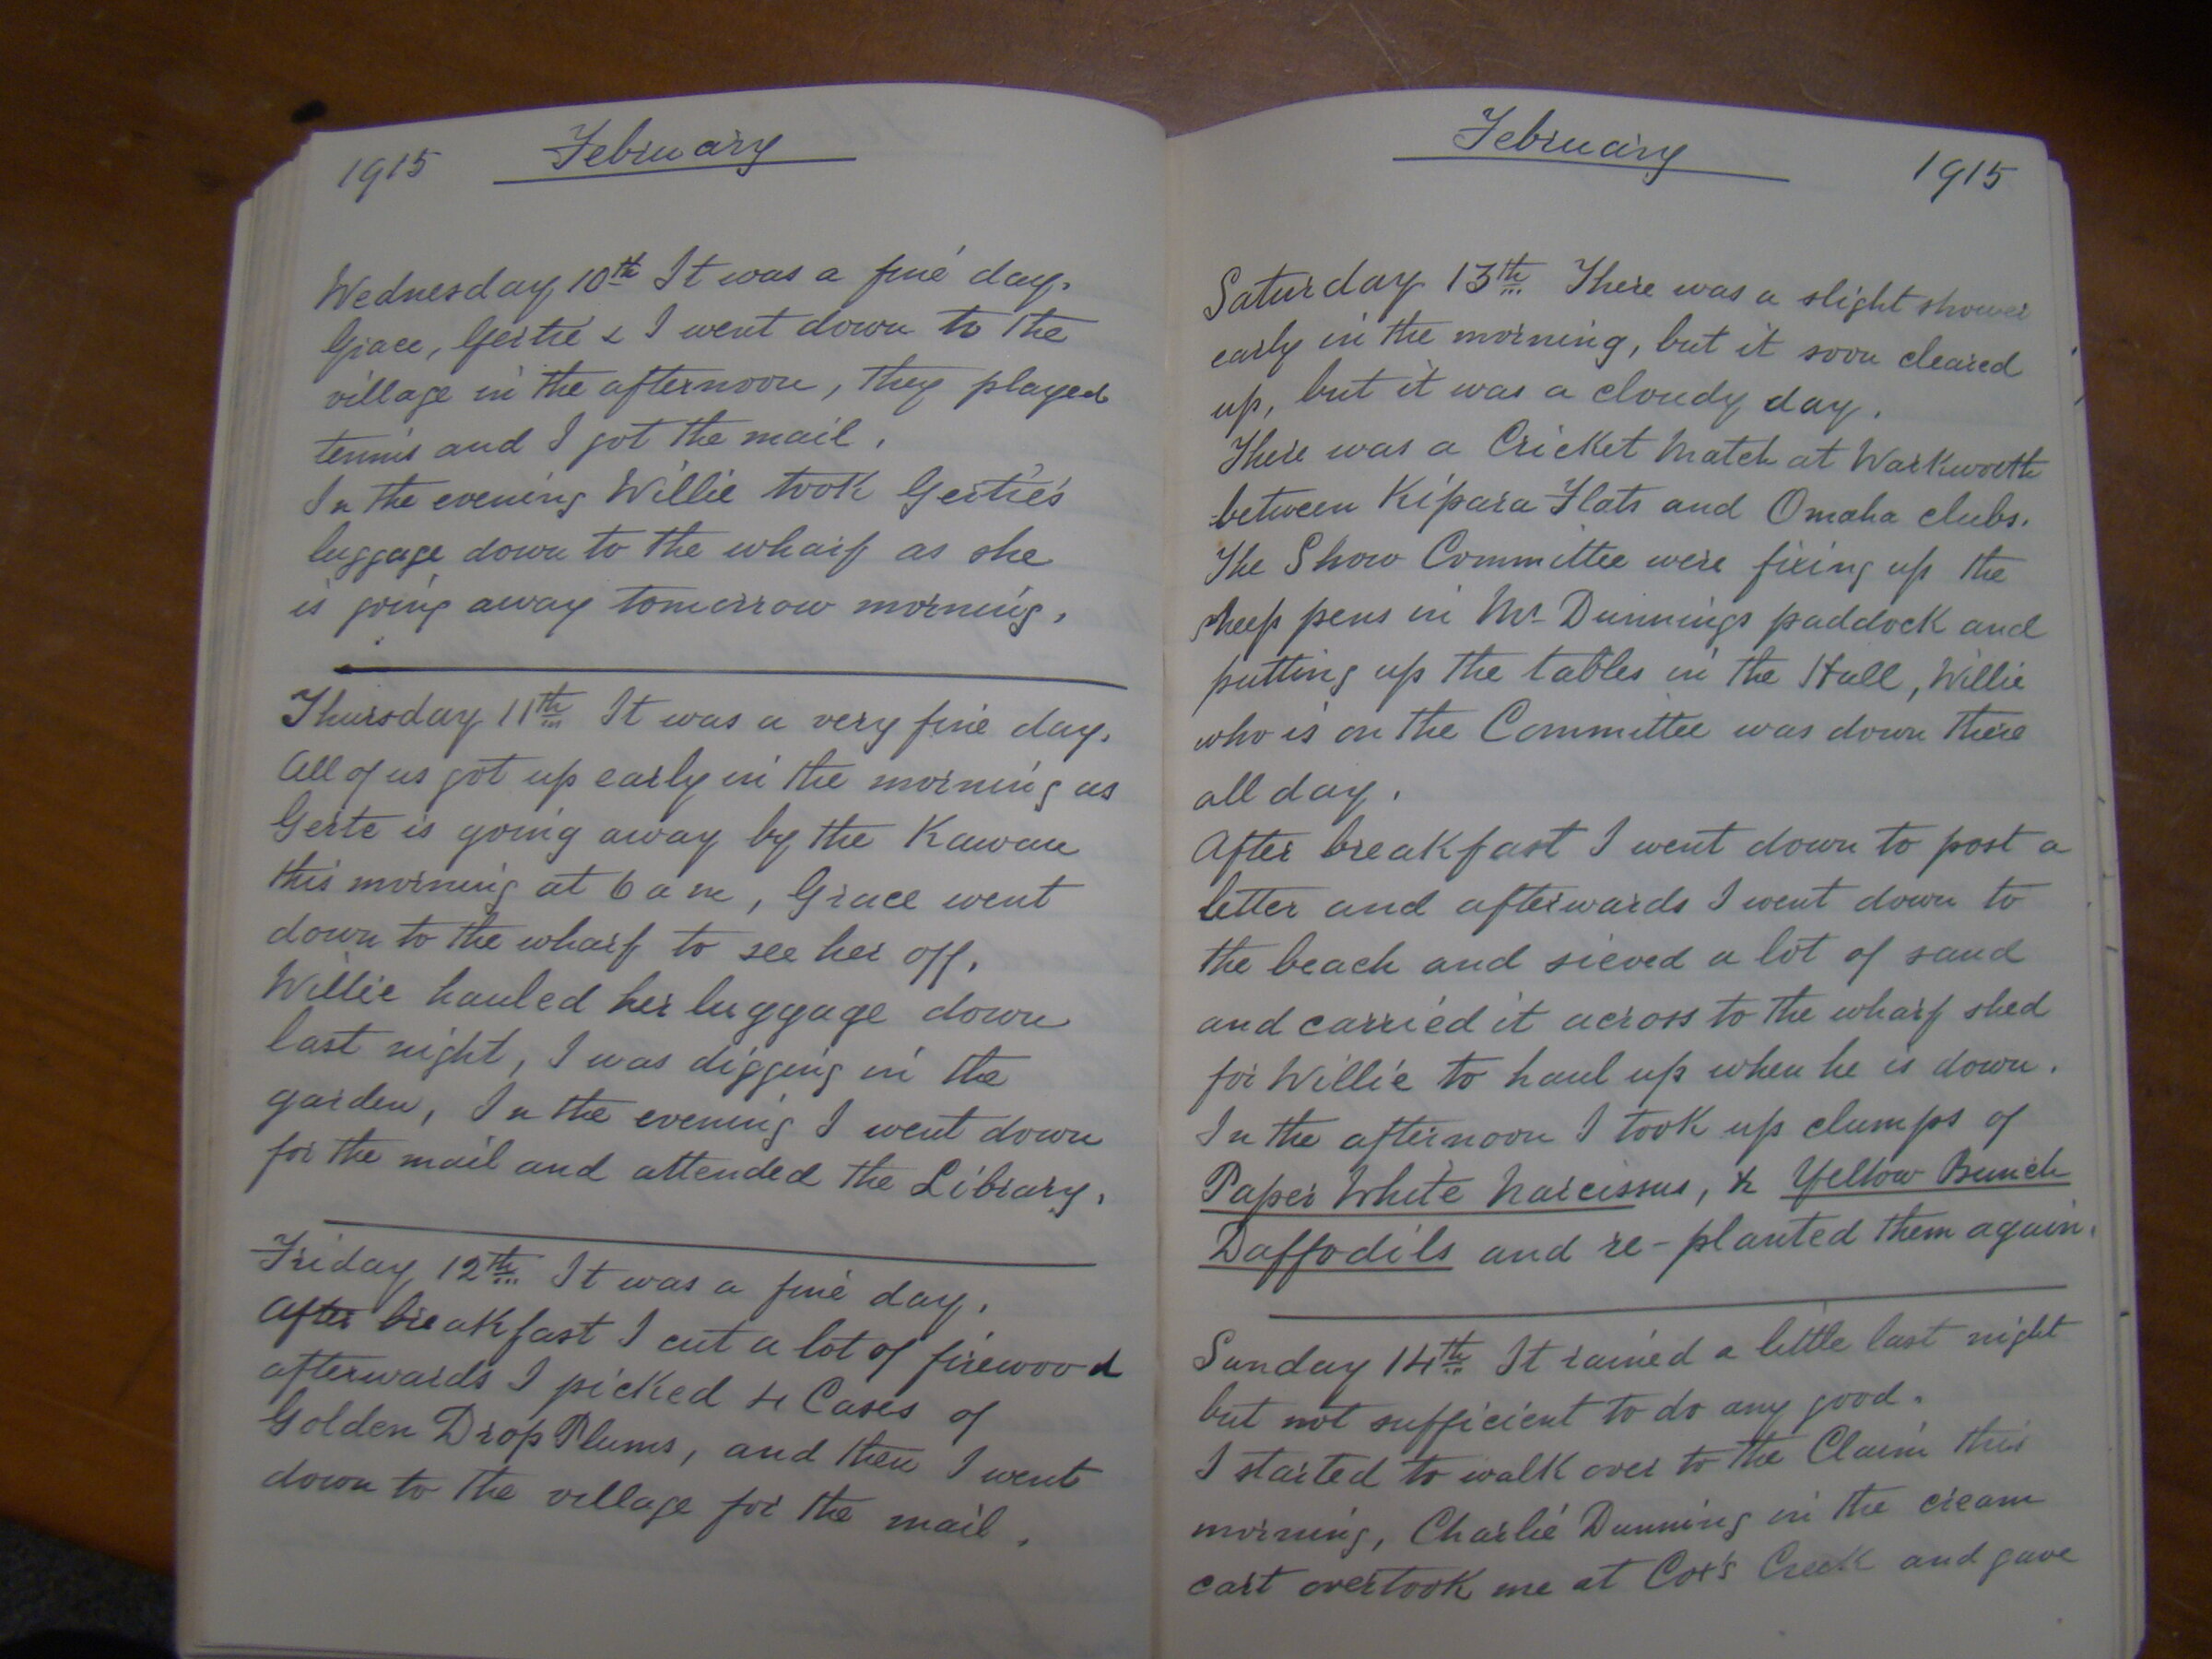 1915 February
Wednesday 10th It was a fine day.
Grace, Gertie & I went down to the
village in the afternoon, they played
tennis and I got the mail.
In the evening Willie took Gertie's
luggage down to the wharf as she
is going away tomorrow morning.
Thursday 11th It was a very fine day.
All of us got up early in the morning as
Gerte is going away by the Kawau
this morning at 6 a m, Grace went
down to the wharf to see her off.
Willie hauled her luggage down
last night, I was digging in the
garden, In the evening I went down
for the mail and attended the Library.
Friday 12th It was a fine day.
After breakfast I cut a lot of firewood
afterwards I picked 4 Cases of
Golden Drop Plums, and then I went
down to the village for the mail.
February 1915
Saturday 13th There was a slight shower
early in the morning, but it soon cleared
up, but it was a cloudy day.
There was a Cricket Match at Warkworth
between Kipara Flats and Omaha clubs.
The Show Committee were fixing up the
sheep pens in Mr Dunnings paddock and
putting up the tables in the Hall, Willie
who is on the Committee was down there
all day.
After breakfast I went down to post a
letter and afterwards I went down to
the beach and sieved a lot of sand
and carried it across to the wharf shed
for Willie to haul up when he is down.
In the afternoon I took up clumps of
Paper White Narcissus, & Yellow Bunch
Daffodils and re-planted them again.
Sunday 14th It rained a little last night
but not sufficient to do any good.
I started to walk over to the Claim this
morning, Charlie Dunning in the cream
cart overtook me at Cox's Creek and gave